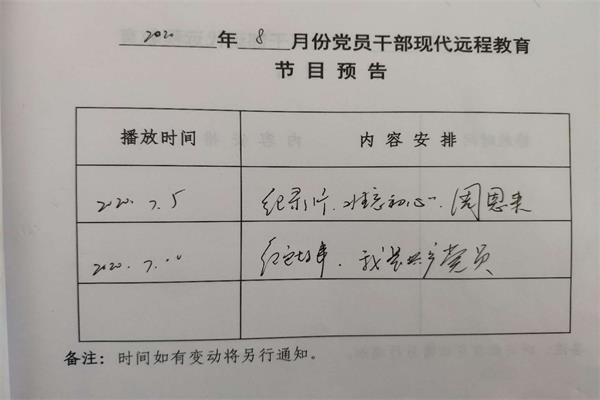 2020 年 8 月份党员干部现代远程教育
节目预告
播放时间 内容安排
2020.7.5 纪录片. 难忘初心. 周恩来
2020.7. 红色故事. 我是共产党员
备注：时间如有变动将另行通知。